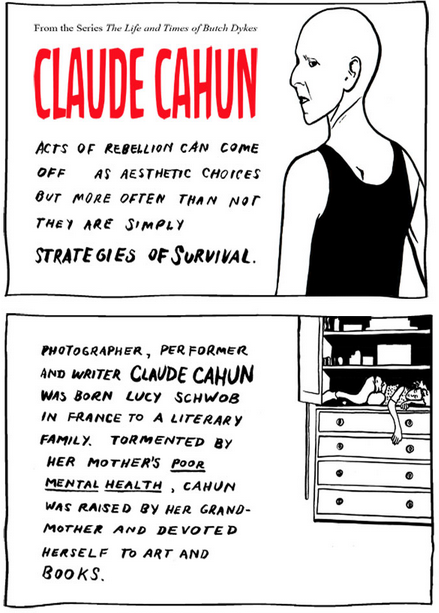 From the Series The Life and Times of Butch Dykes
CLAUDE CAHUN
ACTS OF REBELLION CAN COME
OFF AS AESTHETIC CHOICES
BUT MORE OFTEN THAN NOT
THEY ARE SIMPLY
STRATEGIES OF SURVIVAL.
PHOTOGRAPHER, PERFORMER
AND WRITER CLAUDE CAHUN
WAS BORN LUCY SCHWOB
IN FRANCE TO A LITERARY
FAMILY. TORMENTED BY
HER MOTHER'S POOR
MENTAL HEALTH, CAHUN
WAS RAISED BY HER GRAND-
MOTHER AND DEVOTED
HERSELF TO ART AND
BOOKS.